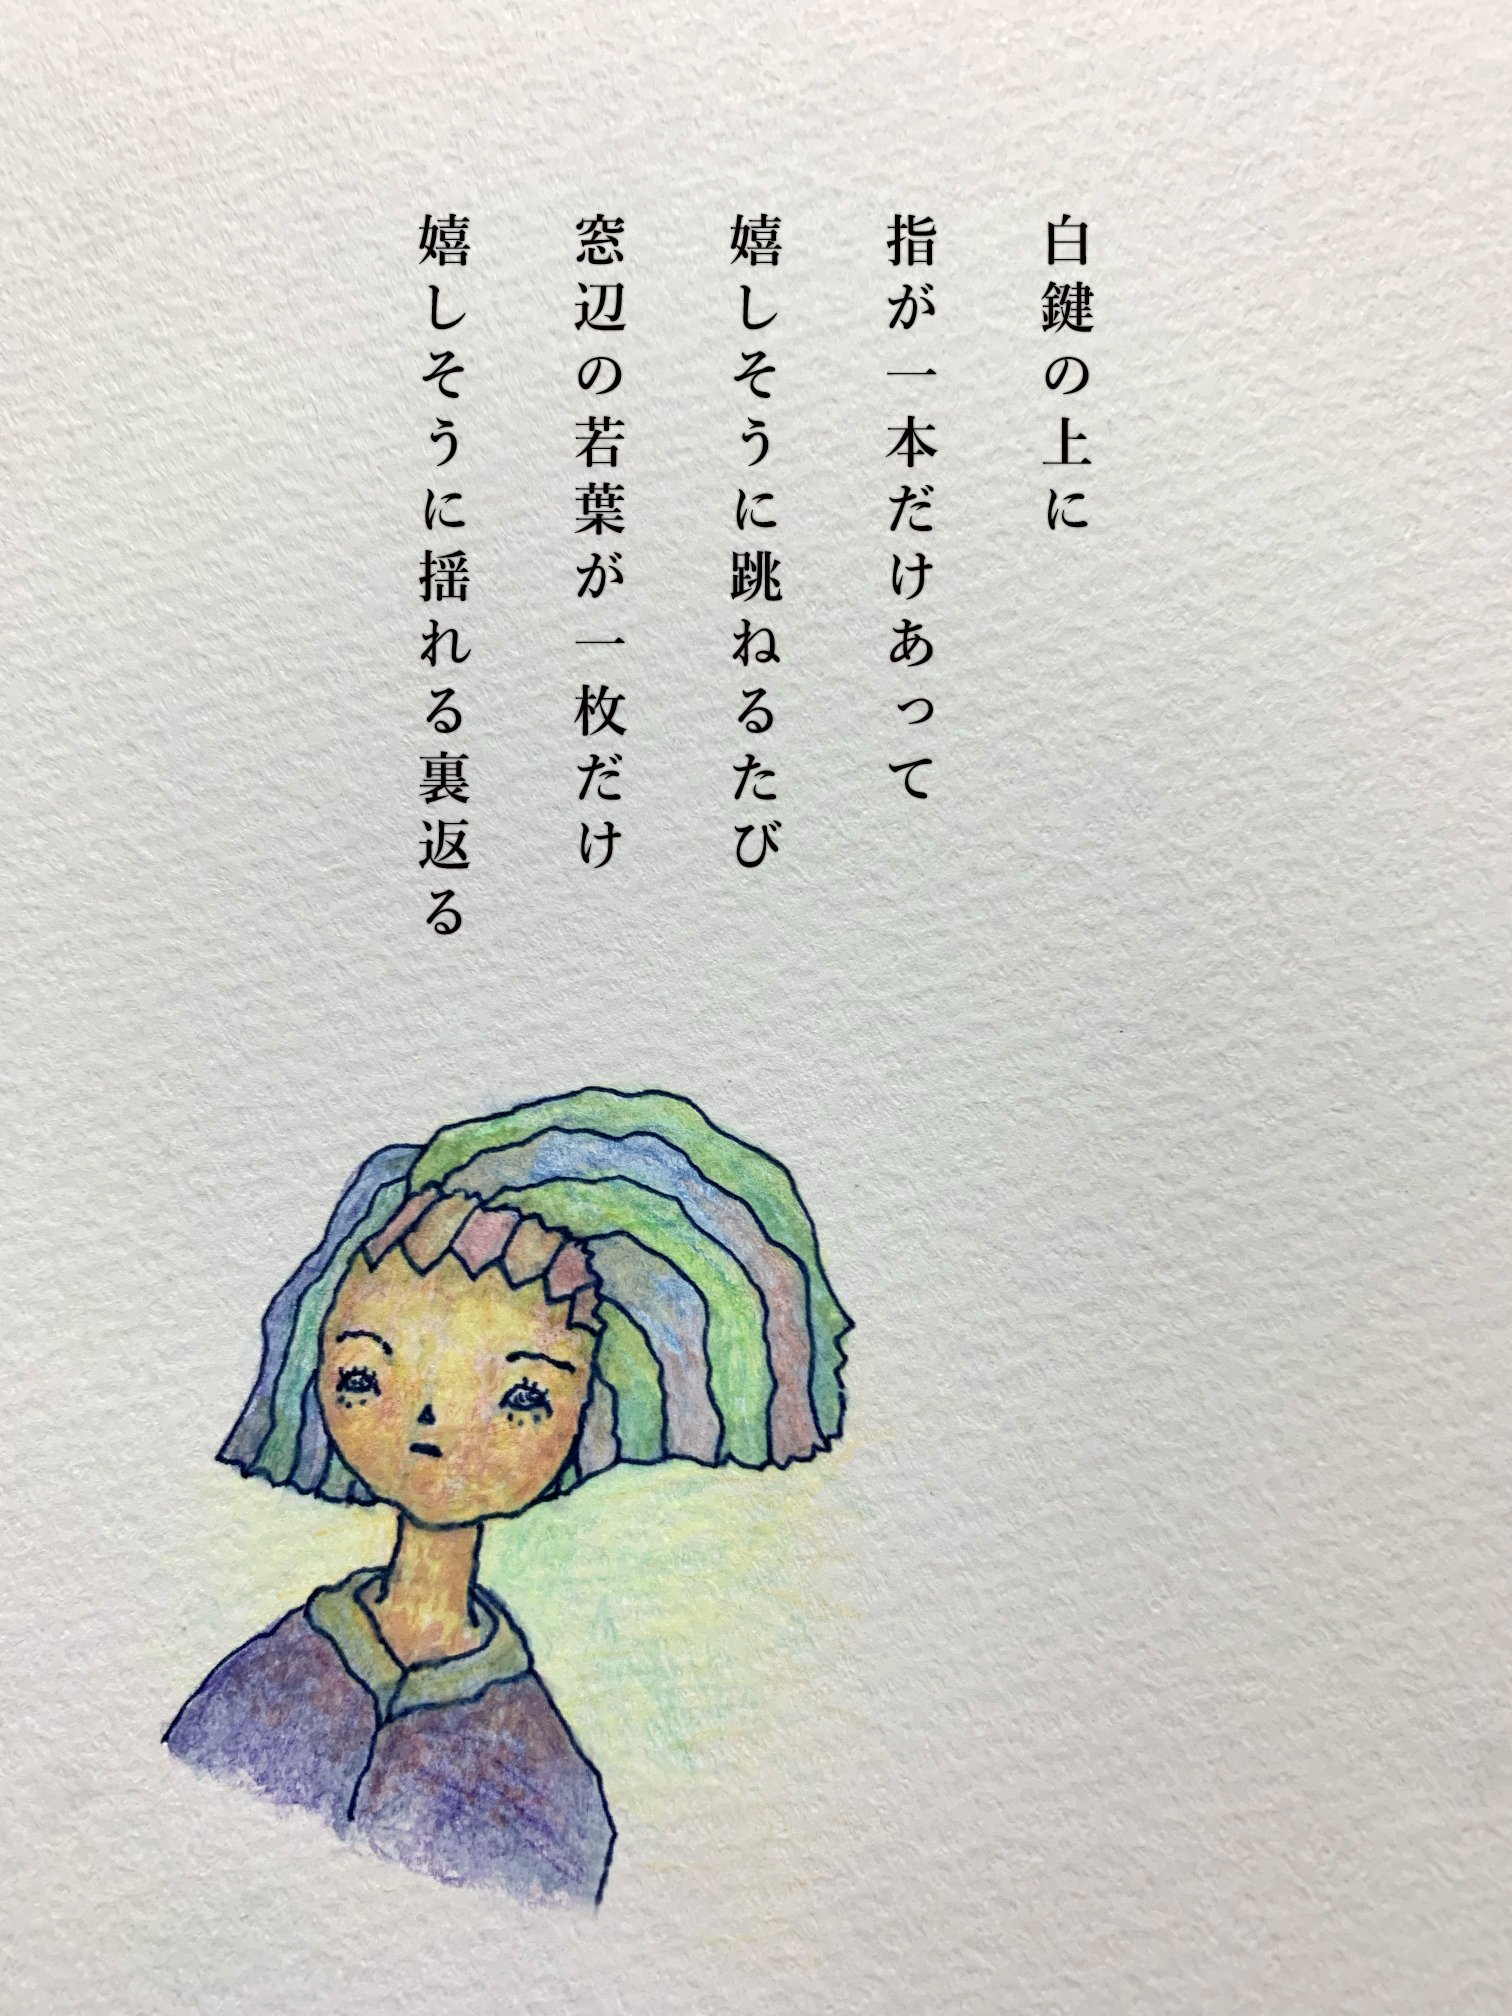 白鍵の上に
指が一本だけあって
嬉しそうに跳ねるたび
窓辺の若葉が一枚だけ
嬉しそうに揺れる裏返る